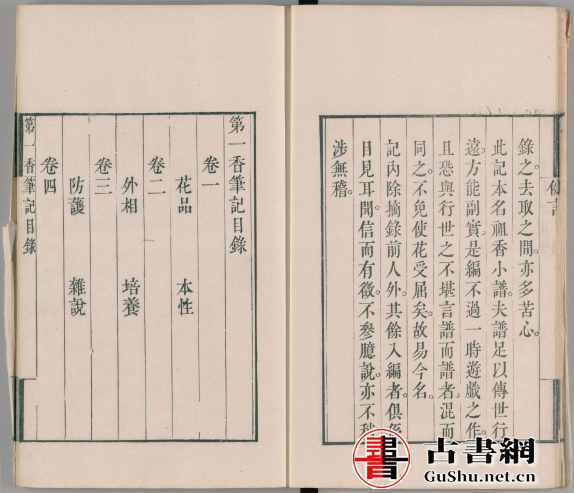 錄之去取之間亦多苦心。
此記本名祖香小譜夫譜足以傳世行
遠方能副實是編不過一時遊戯之作。
且恐與行世之不堪言譜而譜者混而
同之不免使花受屈矣故易今名。
記內除摘錄前人外其餘入編者俱係
目見耳聞信而有徵不參臆說亦不
涉無稽。
第一香筆記目錄
卷一
花品 本性
卷二
外相 培養
卷三
防護 雜說
卷四
第一香筆記目錄
書 古書網
GuShu.net.cn